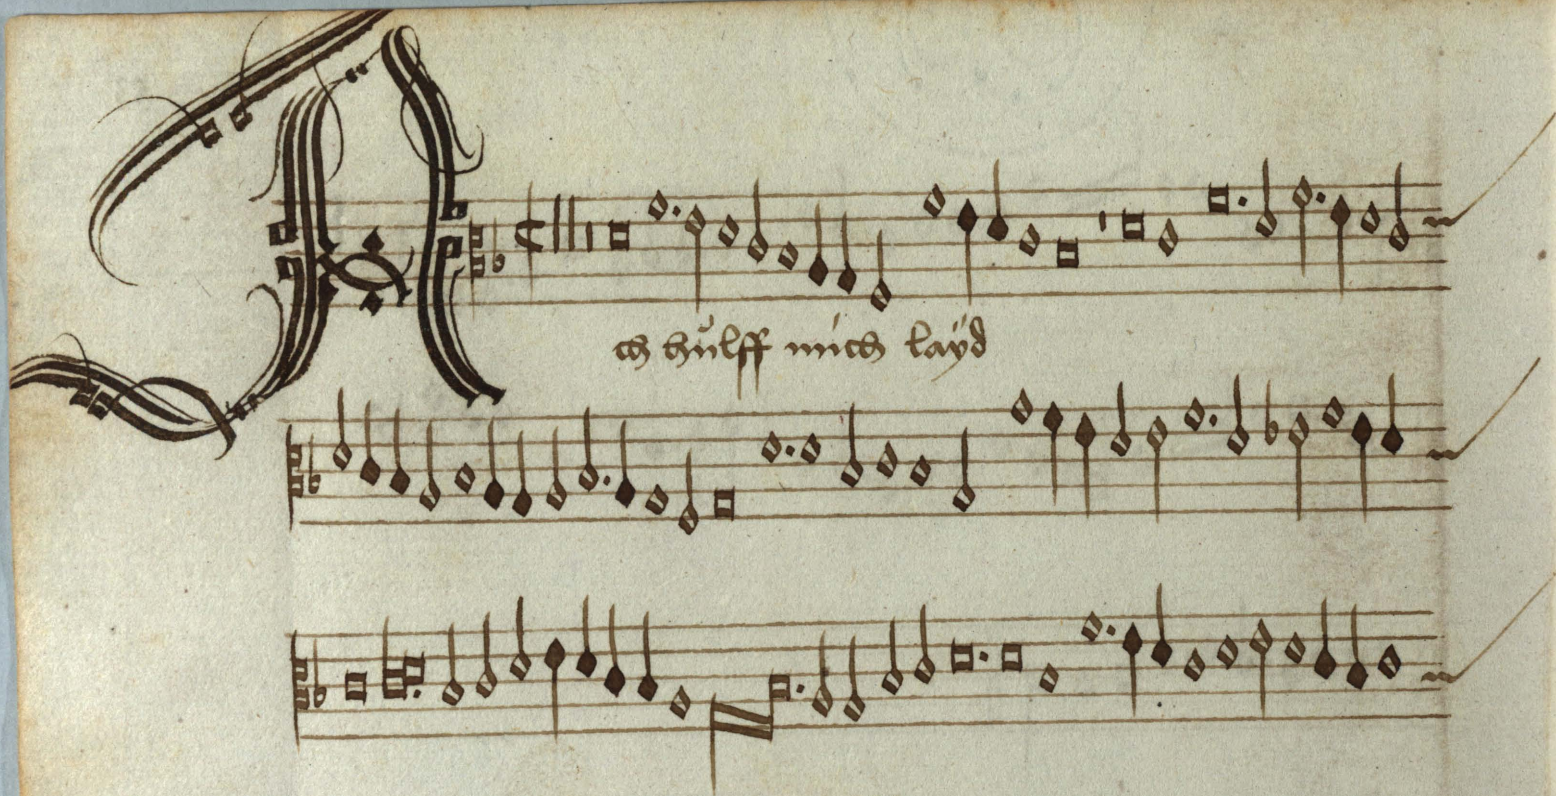 Ach hülff mich layd